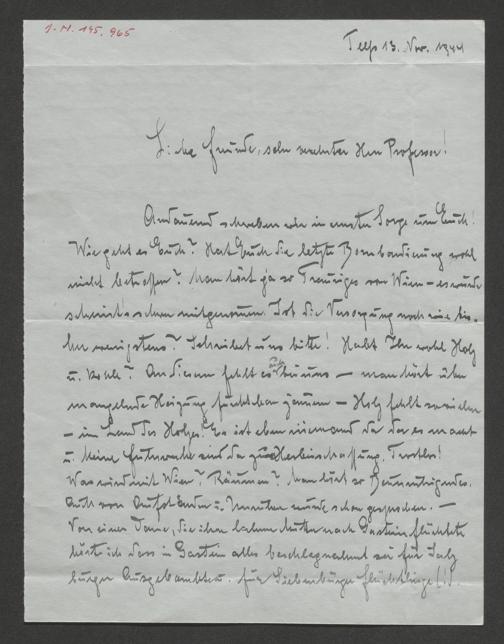 J.N. 195.965
Telfs 13. Nov. 1944
Liebe Freunde, sehr verehrter Herr Professor!
Andauernd schweben wir in ernster Sorge um Euch!
Wie geht es Euch? Hat Euch die letzte Bombardierung wohl
nicht betroffen? Man hört ja so Trauriges von Wien – es wurde
scheint's schwer mitgenommen. Ist die Versorgung noch wie bis-
her wenigstens? Schreibet uns bitte! Habt Ihr wohl Holz
u. Kohle? An diesem fehlt es auch bei uns – man hört über
mangelnde Heizung furchtbar jammern – Holz fehlt so vielen
– im Land des Holzes. Es ist eben niemand da der es macht
u. keine Fuhrwerke sind da zur Herbeischaffung. Trostlos!
Was wird mit Wien? Räumen? Man hört so Beunruhigendes.
Auch von Aufständen u. Unruhen wurde schon gesprochen. –
Von einer Dame, die ihre Mutter nach Gastein flüchtete
hörte ich dass in Gastein alles beschlagnahmt sei für Salz
burger Ausgebombten. für Siebenbürger Flüchtlinge (!).